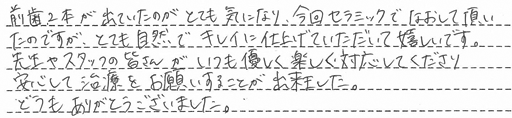 前歯2本が出ていたのがとても気になり、今回セラミックでなおして頂い
たのですが、とても自然でキレイに仕上げていただいて嬉しいです。
先生やスタッフの皆さんがいつも優しく楽しく対応してくださり
安心して治療をお願いすることが出来ました。
どうもありがとうございました。